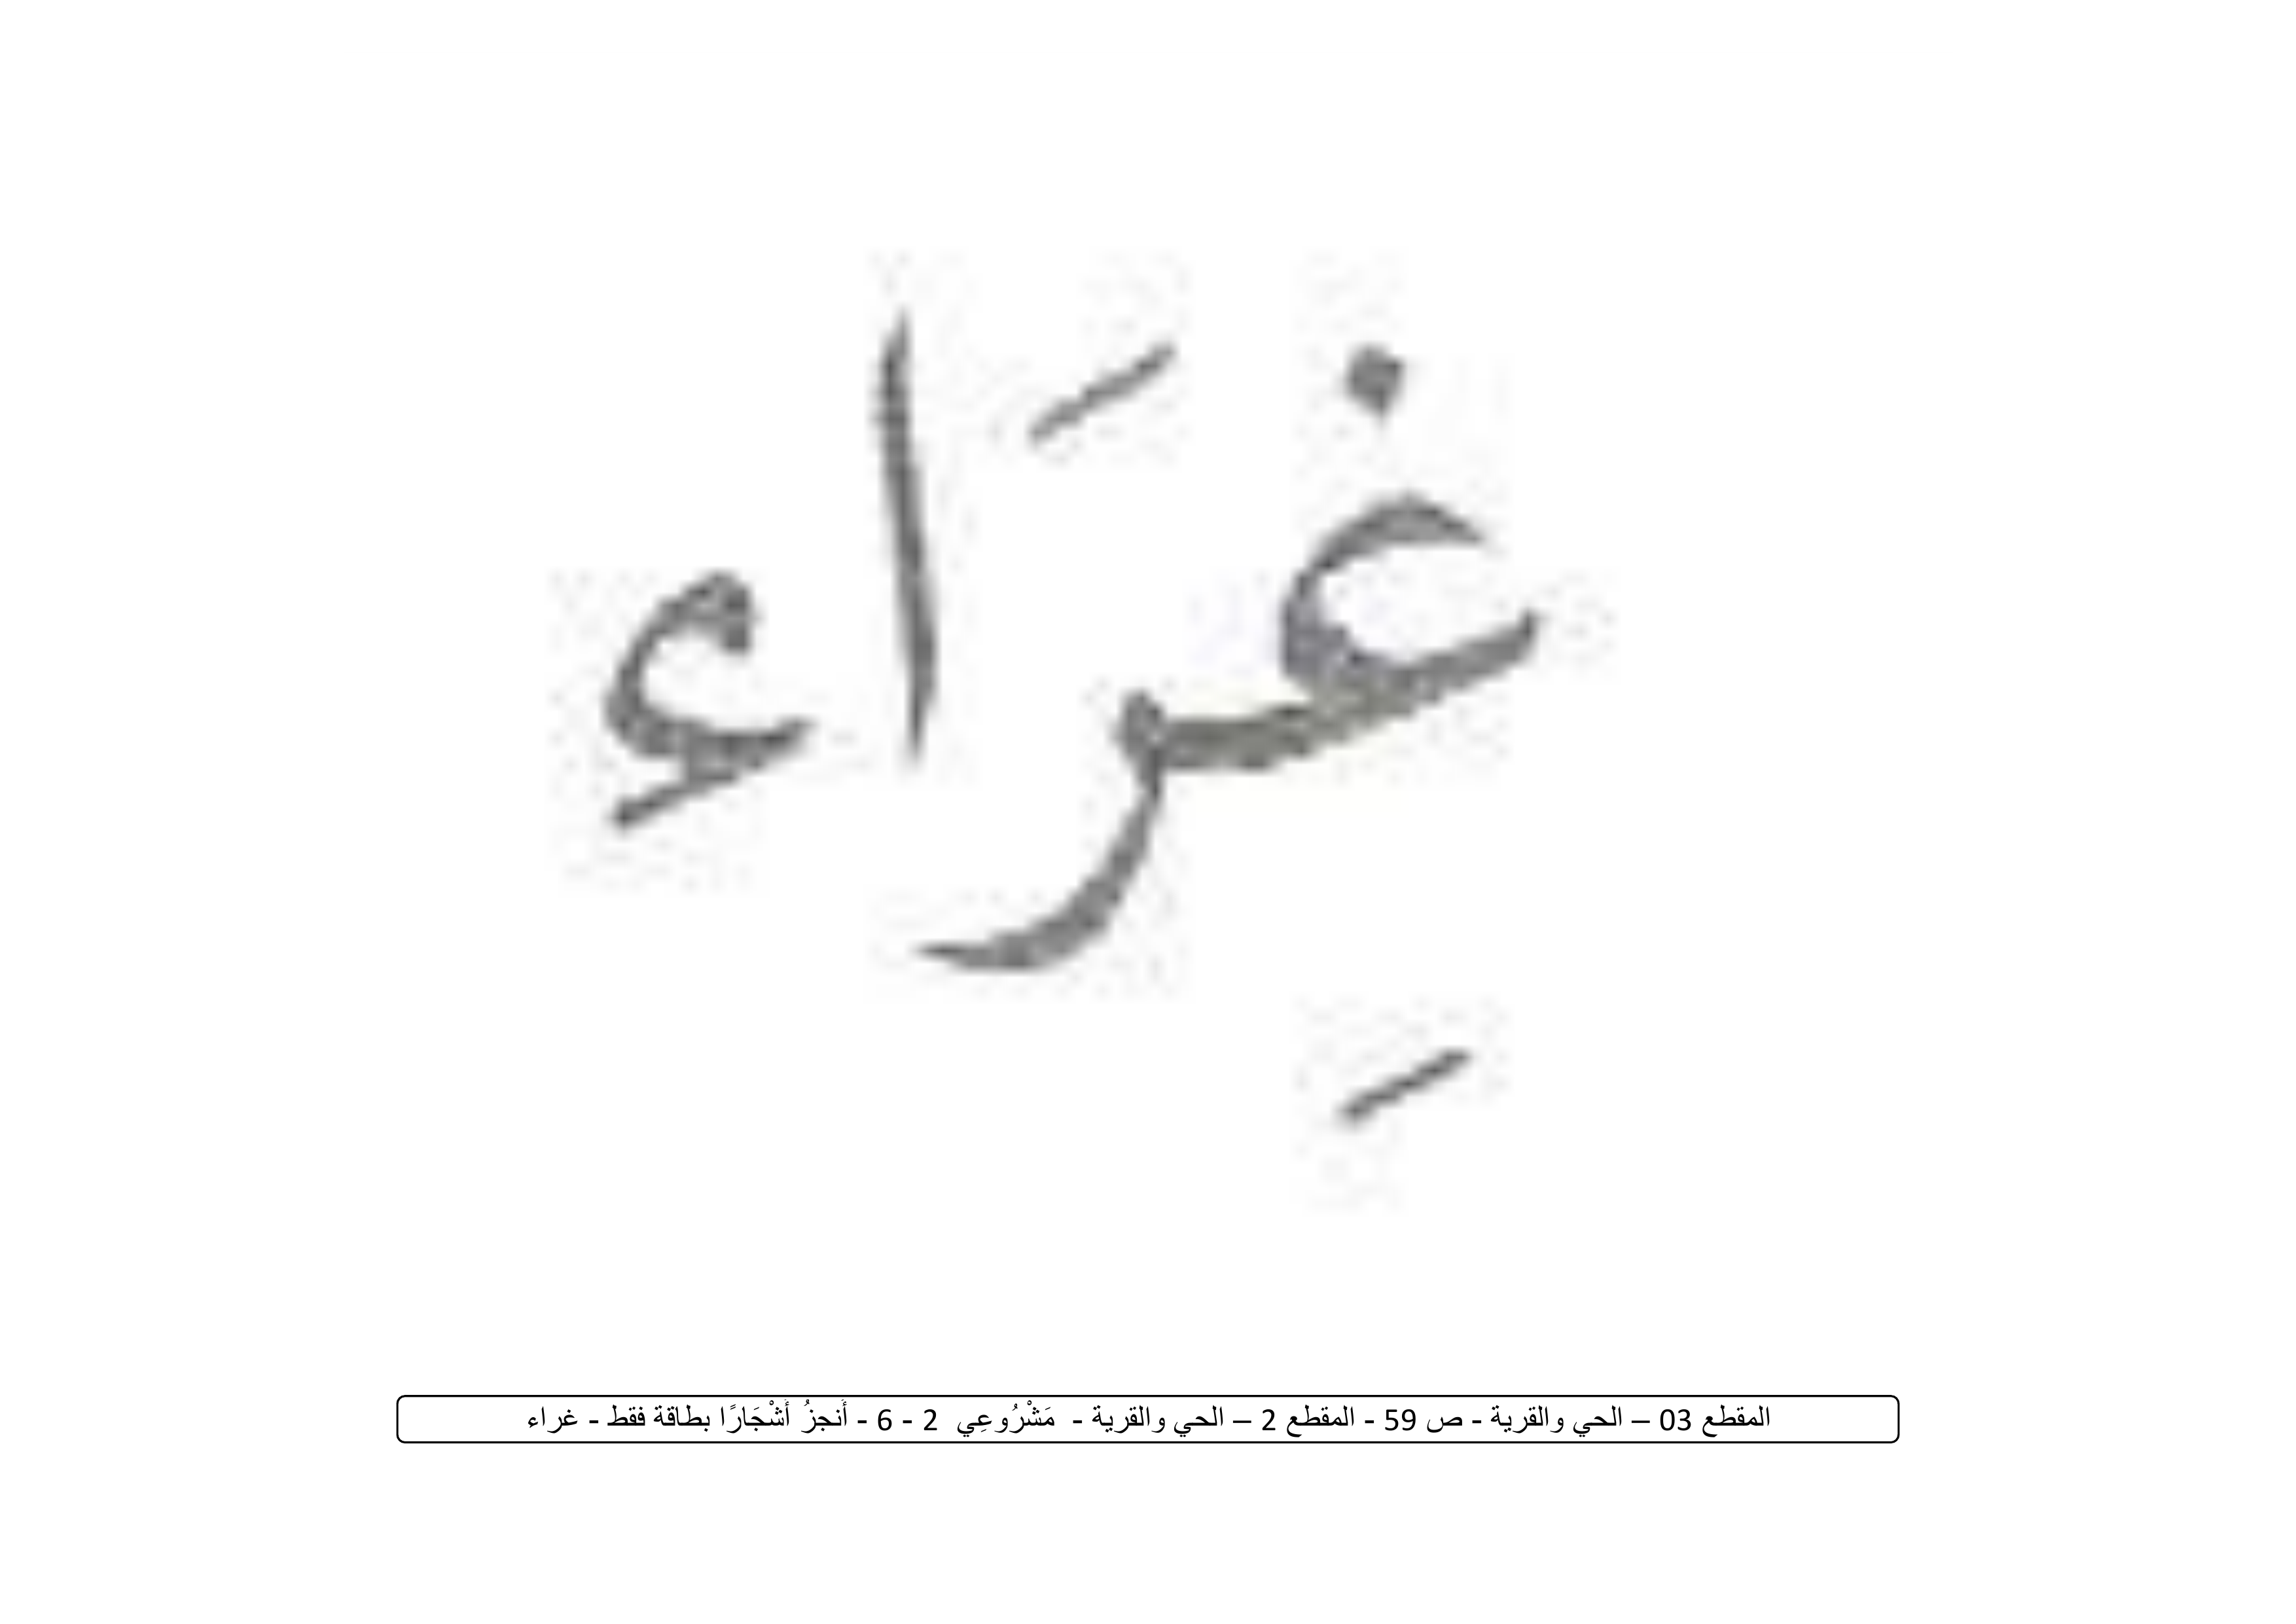 غِرَاء
المقطع 03 – الحي والقرية - ص 59 - المقطع 2 – الحي والقرية - مَشْرُوعِي 2 - 6 - أَنجزُ أَشْجَارًا بطاقة فقط - غراء